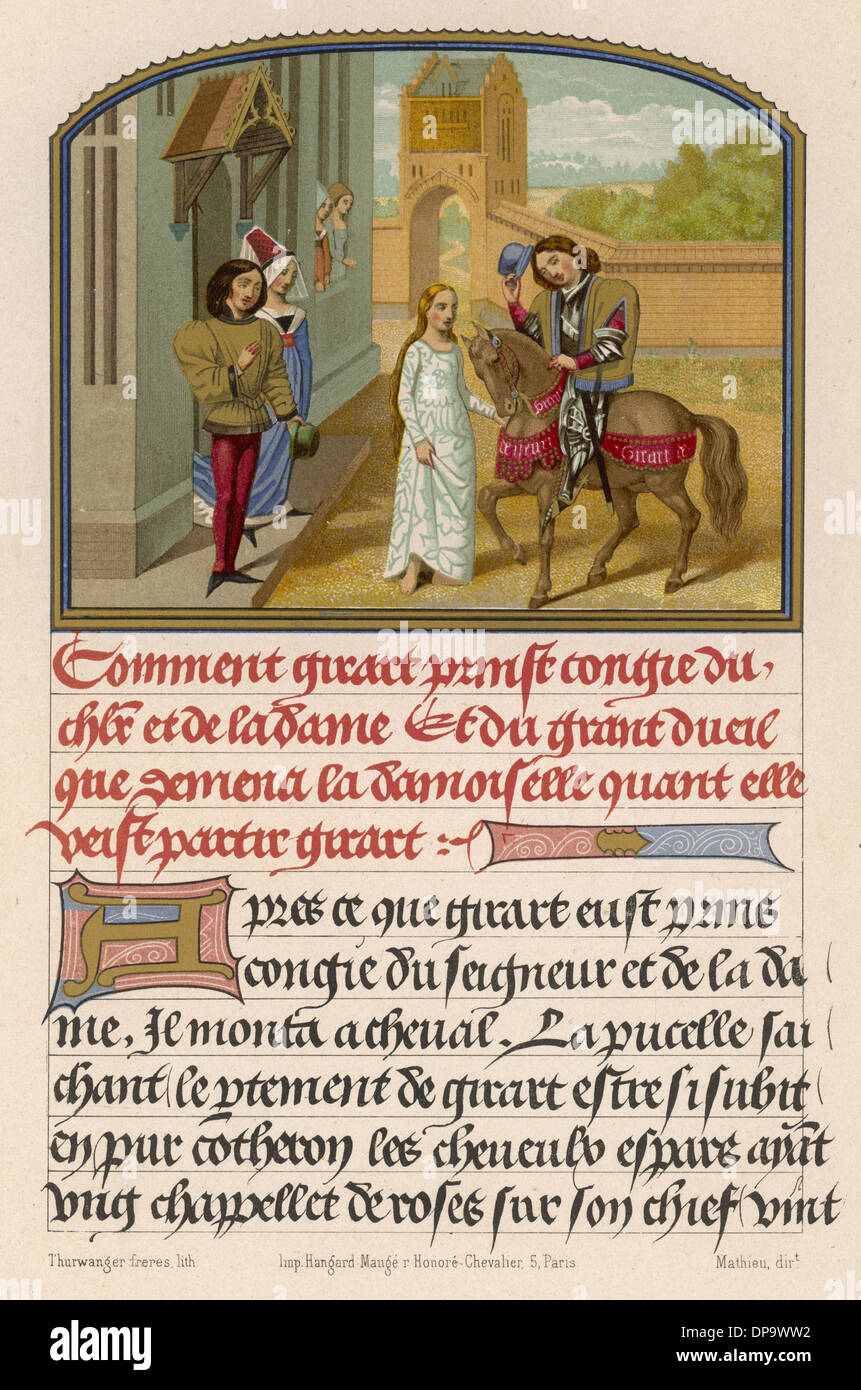 brun
ce neur
Girart e
Comment girart prinst congie du
chlr et de la dame Et du grant dueil
que demena la damoiselle quant elle
veist partir girart :~
Apres ce que girart eust prins
congie du seigneur et de la da
me, Il monta a cheual. La pucelle sai
chant le ptement de girart estre si subit
en pur cotheron les cheueulx espars ayāt
vng chappellet de roses sur son chief vint
Thurwanger freres, lith. Imp. Hangard-Maugé r Honoré-Chevalier, 5, Paris Mathieu, dirt.
alamy
Image ID: DP9WW2
www.alamy.com